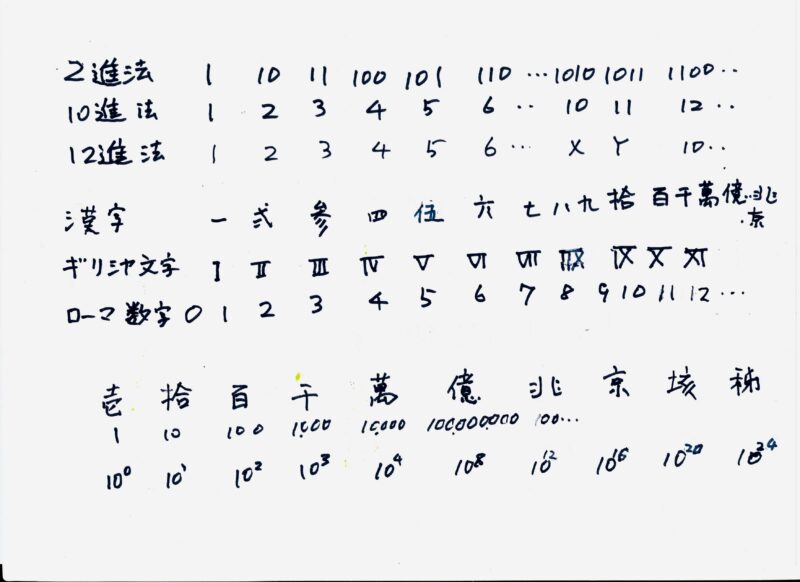 2進法 1 10 11 100 101 110 … 1010 1011 1100 ‥
10進法 1 2 3 4 5 6 ‥ 10 11 12 ‥
12進法 1 2 3 4 5 6 … X Y 10 ‥
漢字 一 弐 参 四 伍 六 七 八 九 拾 百 千 萬 億 … 兆
京
ギリシヤ文字 I II III IV V VI VII IIX IX X XI
ローマ数字 0 1 2 3 4 5 6 7 8 9 10 11 12 …
壱 拾 百 千 萬 億 兆 京 垓 秭
1 10 100 1,000 10,000 100,000,000 100…
10⁰ 10¹ 10² 10³ 10⁴ 10⁸ 10¹² 10¹⁶ 10²⁰ 10²⁴